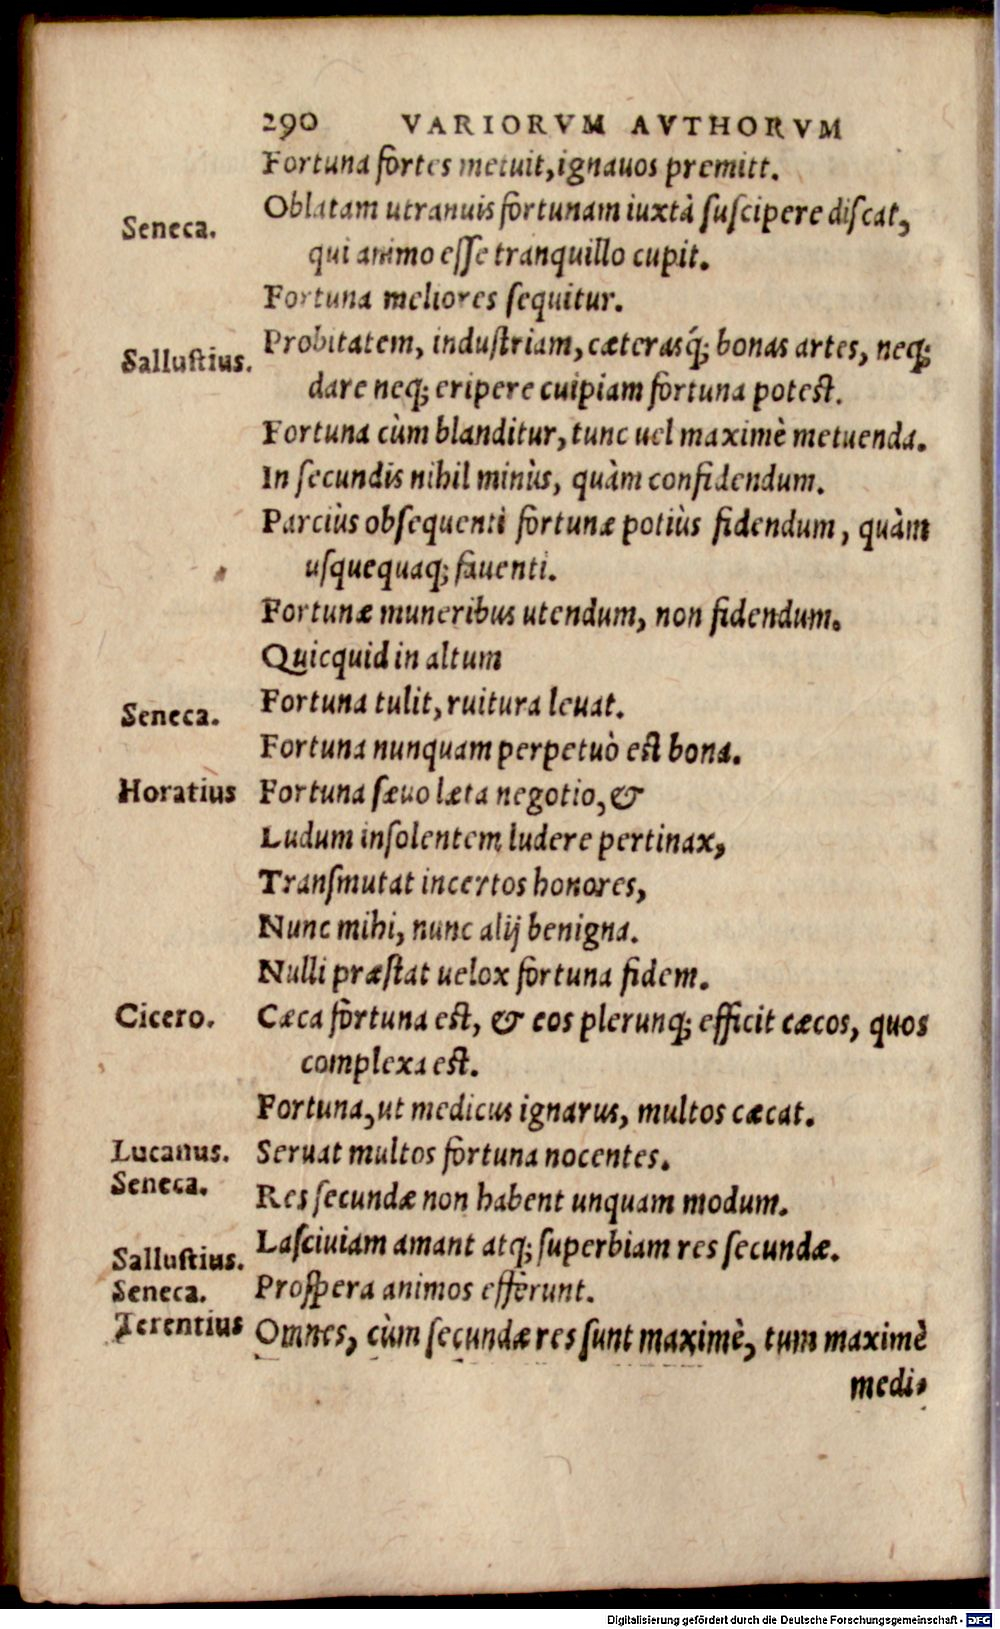 290 VARIORVM AVTHORVM
Fortuna fortes metuit, ignauos premitt.
Seneca. Oblatam utranuis fortunam iuxtà suscipere discat,
qui animo esse tranquillo cupit.
Fortuna meliores sequitur.
Sallustius. Probitatem, industriam, cæterasq́; bonas artes, neq;
dare neq; eripere cuipiam fortuna potest.
Fortuna cùm blanditur, tunc uel maximè metuenda.
In secundis nihil minùs, quàm confidendum.
Parciùs obsequenti fortunæ potiùs fidendum, quàm
usquequaq; fauenti.
Fortunæ muneribus utendum, non fidendum.
Quicquid in altum
Seneca. Fortuna tulit, ruitura leuat.
Fortuna nunquam perpetuò est bona.
Horatius Fortuna sæuo læta negotio, &
Ludum insolentem ludere pertinax,
Transmutat incertos honores,
Nunc mihi, nunc alij benigna.
Nulli præstat uelox fortuna fidem.
Cicero. Cæca fortuna est, & eos plerunq; efficit cæcos, quos
complexa est.
Fortuna, ut medicus ignarus, multos cæcat.
Lucanus. Seruat multos fortuna nocentes.
Seneca. Res secundæ non habent unquam modum.
Sallustius. Lasciuiam amant atq; superbiam res secundæ.
Seneca. Prospera animos efferunt.
Terentius Omnes, cùm secundæ res sunt maximè, tum maximè
medi-
Digitalisierung gefördert durch die Deutsche Forschungsgemeinschaft - DFG